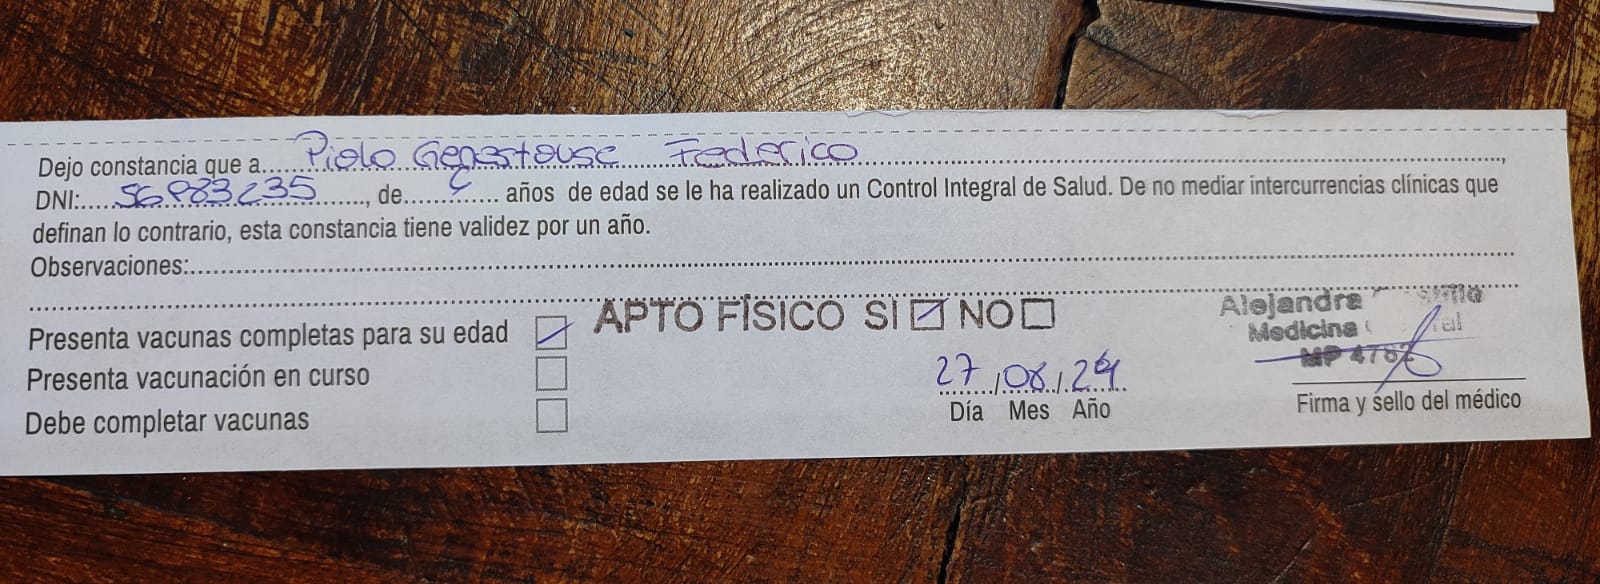 Dejo constancia que a.....Piolo Genestouse Federico.....,
DNI:.....56983235....., de........... años de edad se le ha realizado un Control Integral de Salud. De no mediar intercurrencias clínicas que
definan lo contrario, esta constancia tiene validez por un año.
Observaciones:.....
APTO FÍSICO SI NO
Presenta vacunas completas para su edad
Presenta vacunación en curso
Debe completar vacunas
27/08/24
Día Mes Año
Alejandra
Medicina
MP 4782
Firma y sello del médico